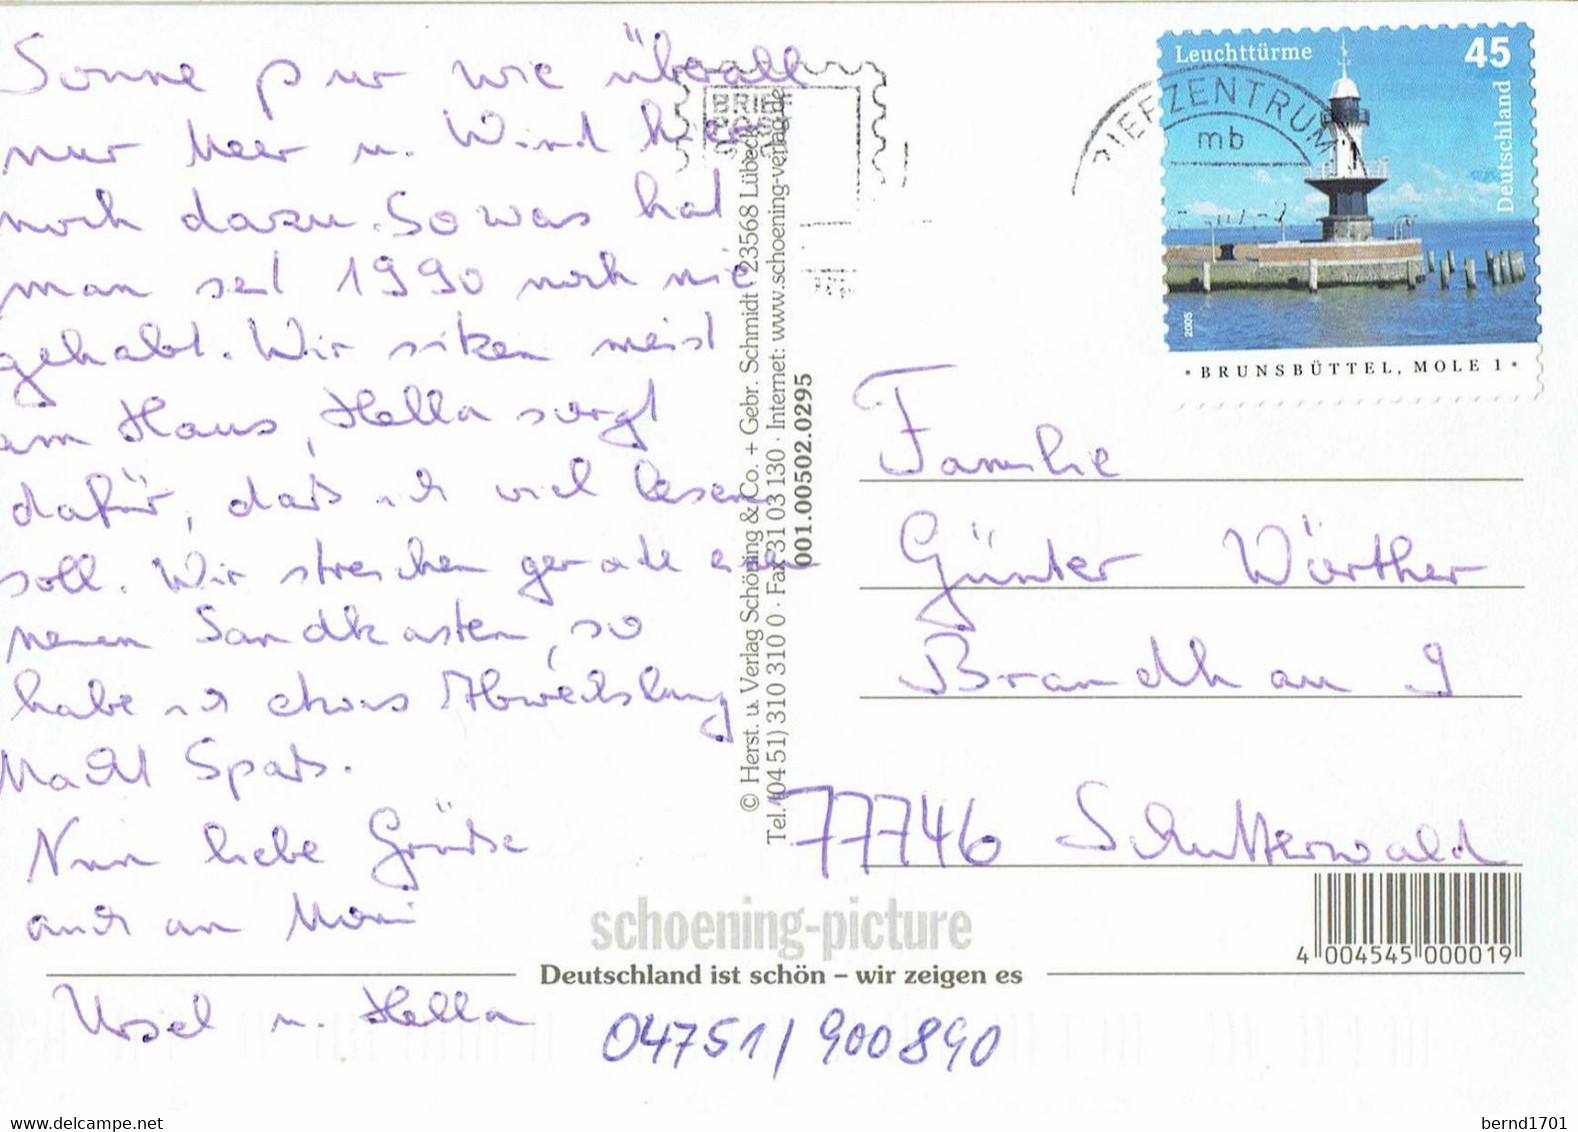 Sonne pur wie überall
nur Meer u. Wind hier
noch dazu. So was hat
man seit 1990 noch nie
gehabt. Wir sitzen meist
im Haus, Hella sorgt
dafür, daß ich viel lesen
soll. Wir streichen gerade einen
neuen Sandkasten, so
habe ich etwas Abwechslung
Macht Spaß.
Nun liebe Grüße
auch an Moni
Ursel u. Hella
04751/900890
© Herst. u. Verlag Schöning & Co. + Gebr. Schmidt · 23568 Lübeck
Tel. (04 51) 310 310 0 · Fax 31 03 130 · Internet: www.schoening-verlag.de
001.00502.0295
BRIEFZENTRUM
mb
Leuchttürme 45
Deutschland
2005
· BRUNSBÜTTEL, MOLE 1 ·
Familie
Günter Wörther
Brandhau 9
77746 Schutterwald
schoening-picture
Deutschland ist schön – wir zeigen es
4 004545 000019
bernd1701